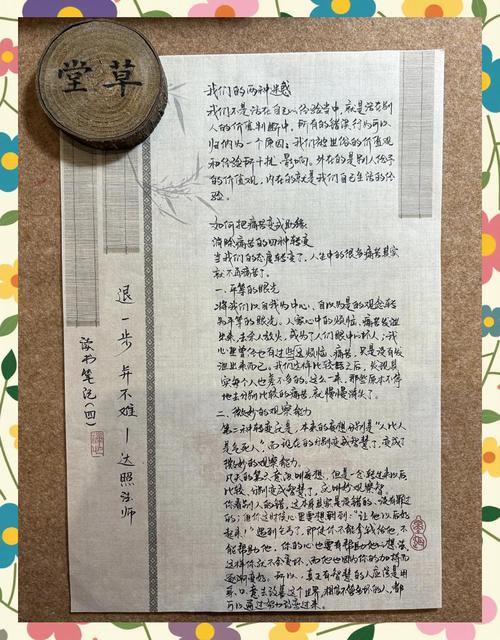 草堂
退一步并不难—达照法师
读书笔记(四)
我们的两种迷惑
我们不是活在自己的经验当中,就是活在别
人的价值判断中。所有的错误行为可以
归纳为一个原因:我们被世俗的价值观
和经验所干扰、影响。外在的是别人给予
的价值观,内在的就是我们自己生活的经
验。
如何把痛苦变成助缘
消除痛苦的四种转变
当我们的态度转变了,人生中的很多痛苦其实
就不再痛苦了。
一、平等的眼光
将我们以自我为中心、自以为是的观念转
为平等的眼光。人家心中的烦恼、痛苦发泄
出来,去杀人放火,成为了人们眼中的坏人;我
心里曾经也有过些这烦恼、痛苦,只是没有发
泄出来而已。我们这样比较之后,发现其
实每个人也差不多的。这么一来,那些原本不停
地去分别比较的痛苦就慢慢消失了。
二、微妙的观察能力
第二种转变就是,本来的妄想分别是“人比人
是气死人”,而现在的分别变成智慧了,变成了
微妙的观察能力。
凡夫的第六意识叫妄想,但是一转过来以后
比较、分别变成智慧了,
你看别人的错,这本身其实是没错的,没有罪过
的;但你这时候心里要想到
起来!”遇到乞丐了,即使你不能拿钱给他,不
能帮助他,你的心也要有帮助他的想法,
这样你就不会变坏,而他也因为你的加持而
逐渐变好。所以,真正有智慧的人应该是用
去改善这个世界,相信不管多坏的人,都
可以通过努力改变过来。